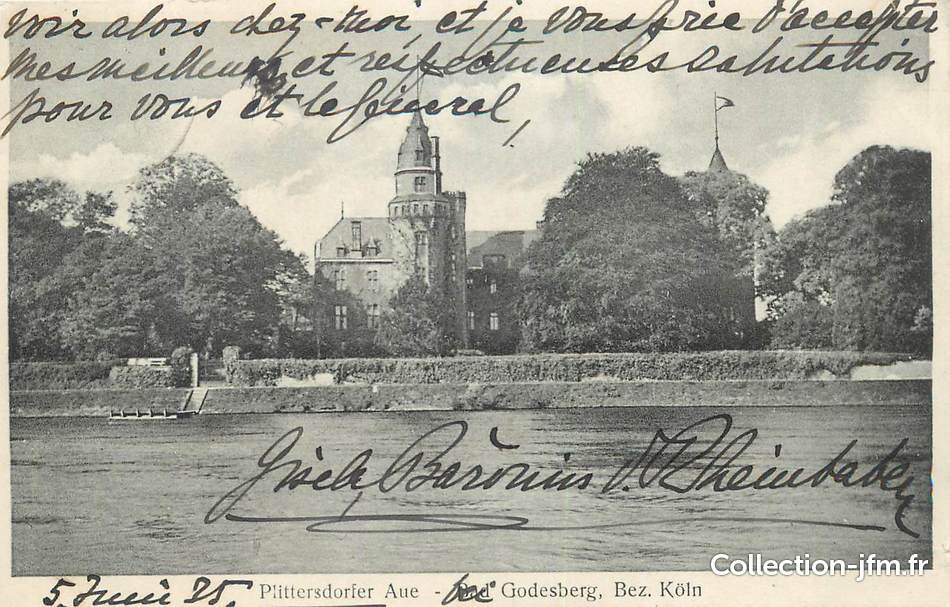 voir alors chez-moi, et je vous prie d'accepter
mes meilleures et respectueuses salutations
pour vous et le général,
Gisela Baronin v. Rheinbaben
Collection-jfm.fr
5. Juin 35. Plittersdorfer Aue - bei Godesberg, Bez. Köln